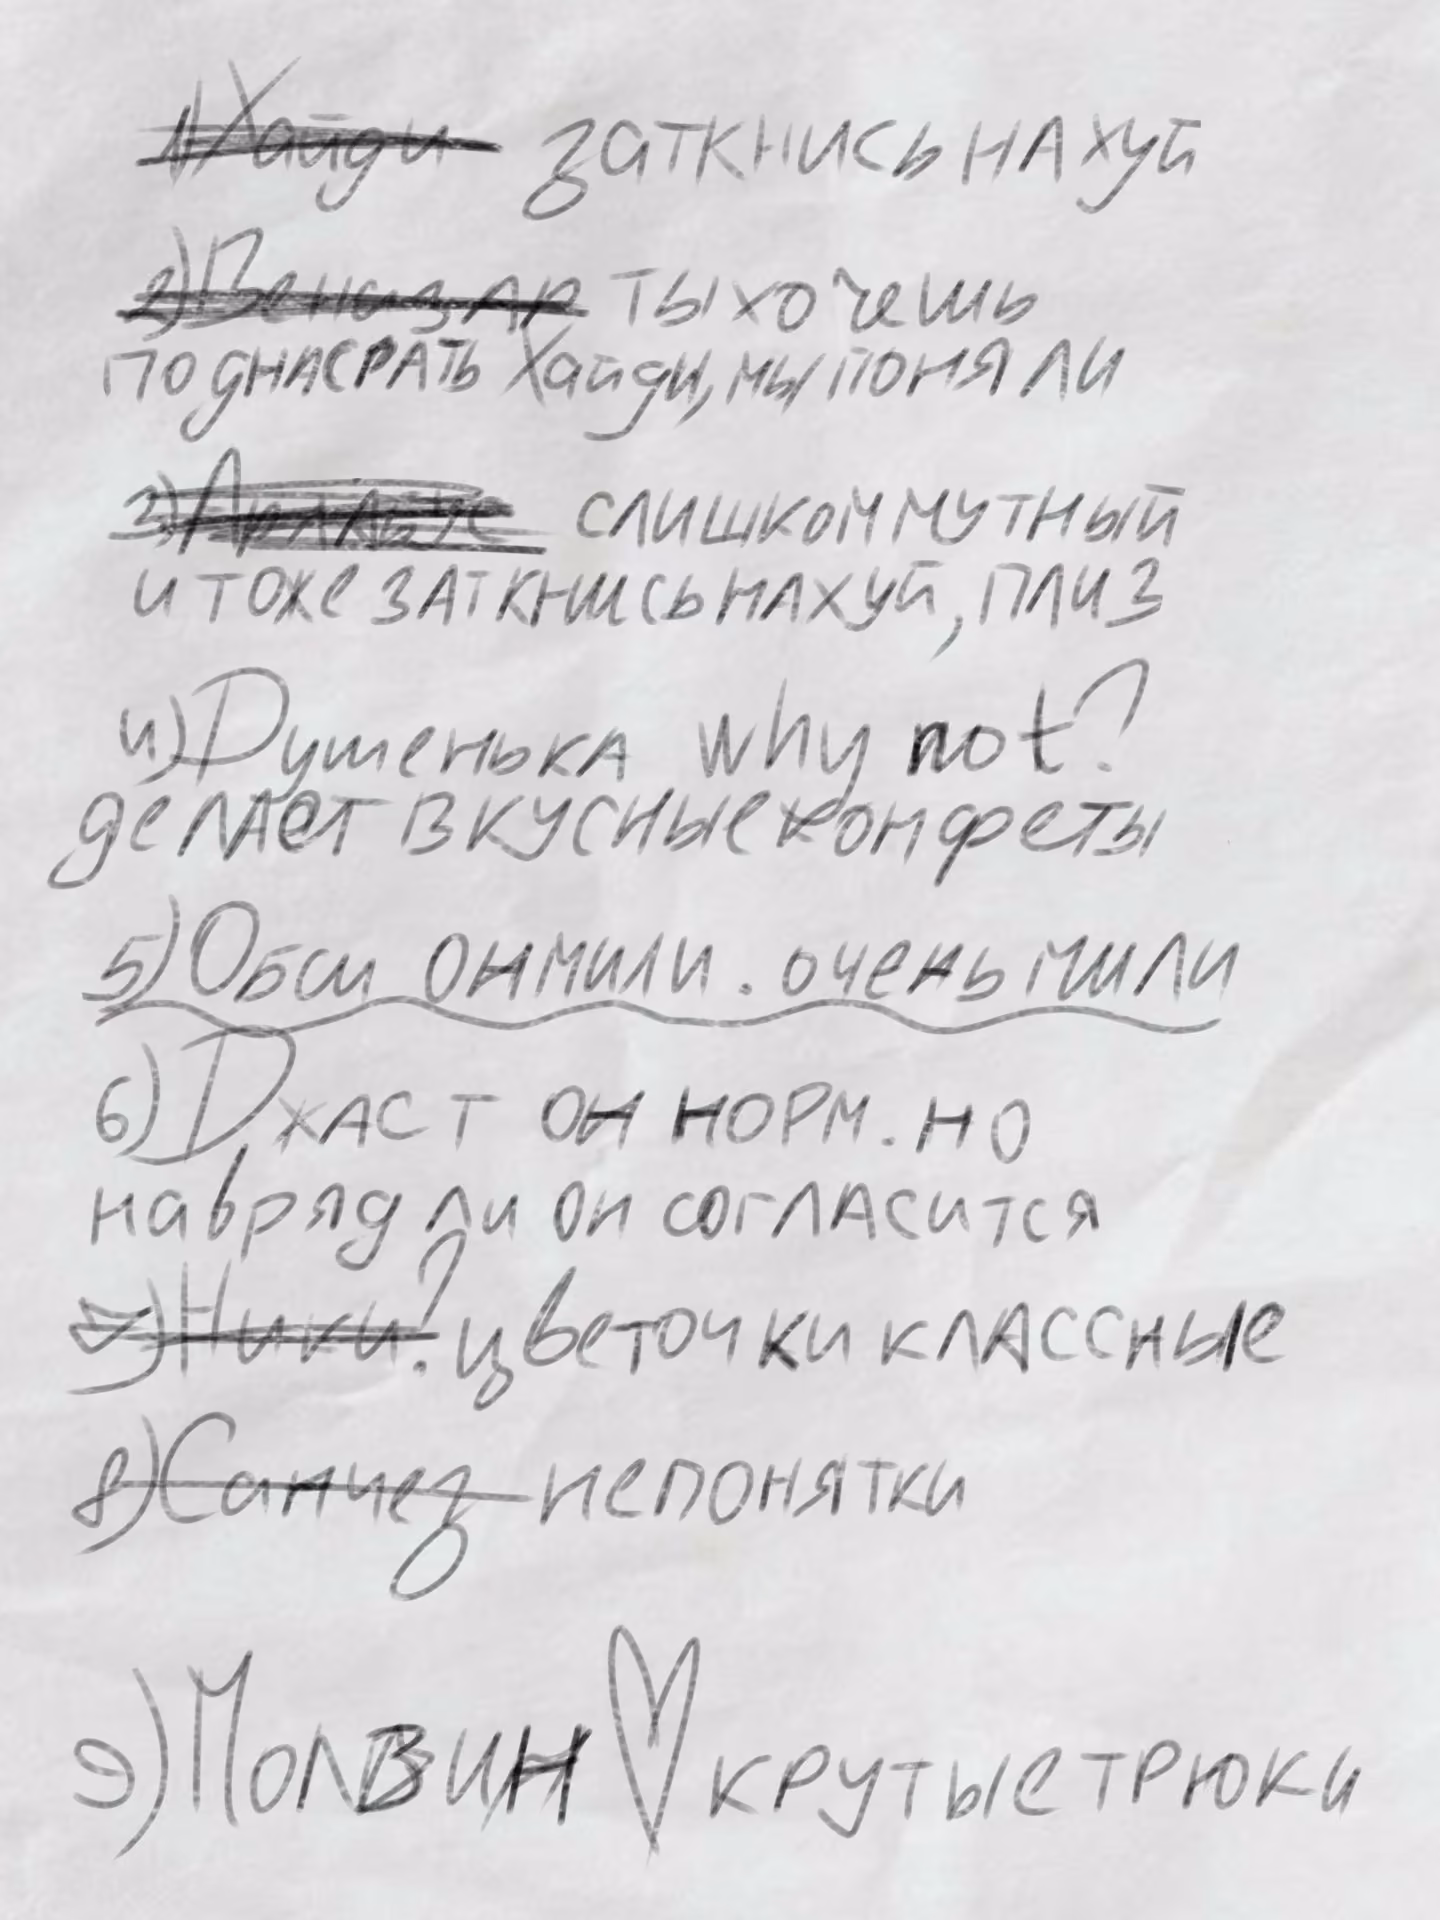 1) Хайди заткнись нахуй
2) Венизар ты хочешь
поднасрать Хайди, мы поняли
3) слишком мутный
и тоже заткнись нахуй, плиз
4) Душенька why not?
делает вкусные конфеты
5) Обси он мили. очень мили
6) Джаст он норм. но
наврядли он согласится
7) Ники? цветочки классные
8) Санчез непонятки
9) Молвин крутые трюки